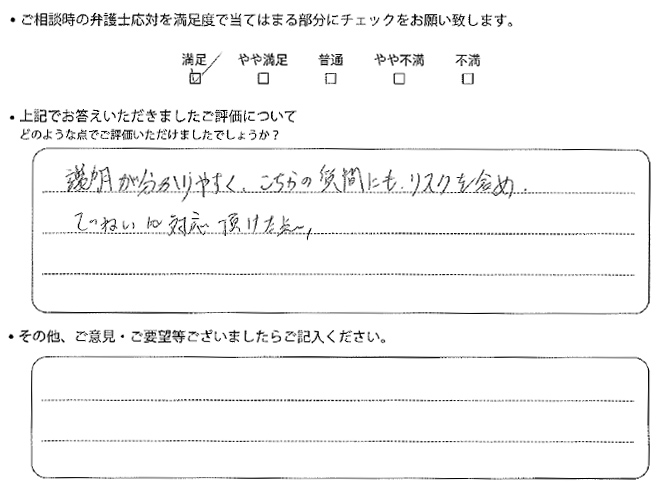 ・ご相談時の弁護士応対を満足度で当てはまる部分にチェックをお願い致します。
満足 やや満足 普通 やや不満 不満
・上記でお答えいただきましたご評価について
どのような点でご評価いただけましたでしょうか？
説明が分かりやすく、こちらの質問にも、リスクを含め、
ていねいに対応頂けた点、
・その他、ご意見・ご要望等ございましたらご記入ください。